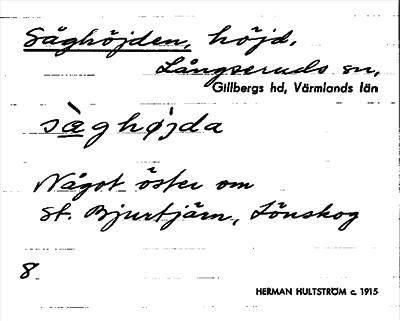 Såghöjden, höjd.
Långseruds sn,
Gillbergs hd, Värmlands län
sæ̀ghøjda
Något öster om
St. Bjurtjärn, Lönskog
8
HERMAN HULTSTRÖM c. 1915